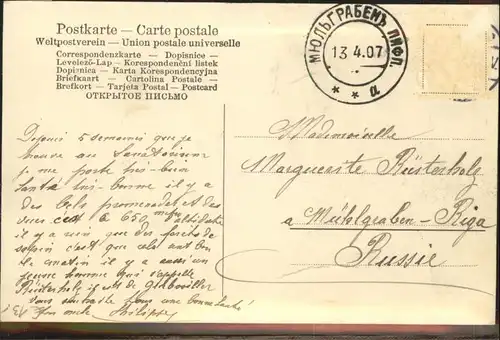 Postkarte — Carte postale
Weltpostverein — Union postale universelle
Correspondenzkarte — Dopisnice
Levelező-Lap — Korespondenční listek
Dopisnica — Karta Korespondencyjna
Briefkaart — Cartolina Postale
Brefkort — Tarjeta Postal — Postcard
ОТКРЫТОЕ ПИСЬМО
МЮЛЬГРАБЕНЪ ЛИФЛ.
13 4.07
* * а
Depuis 5 semaines que je
trouve au Sanatorium
je me porte très-bien
Santé très-bonne il y a
des belles promenades et des
vues c'est à 650 mètres altitude
il y a rien que des forêts de
sapin c'est que cela ont bon
le matin il y a aussi un
jeune homme qui s'appelle
Rüsterholz il est de
vous souhaite bonne santé
oncle Philippe
Mademoiselle
Marguerite Rüsterholz
a Mühlgraben-Riga
Russie